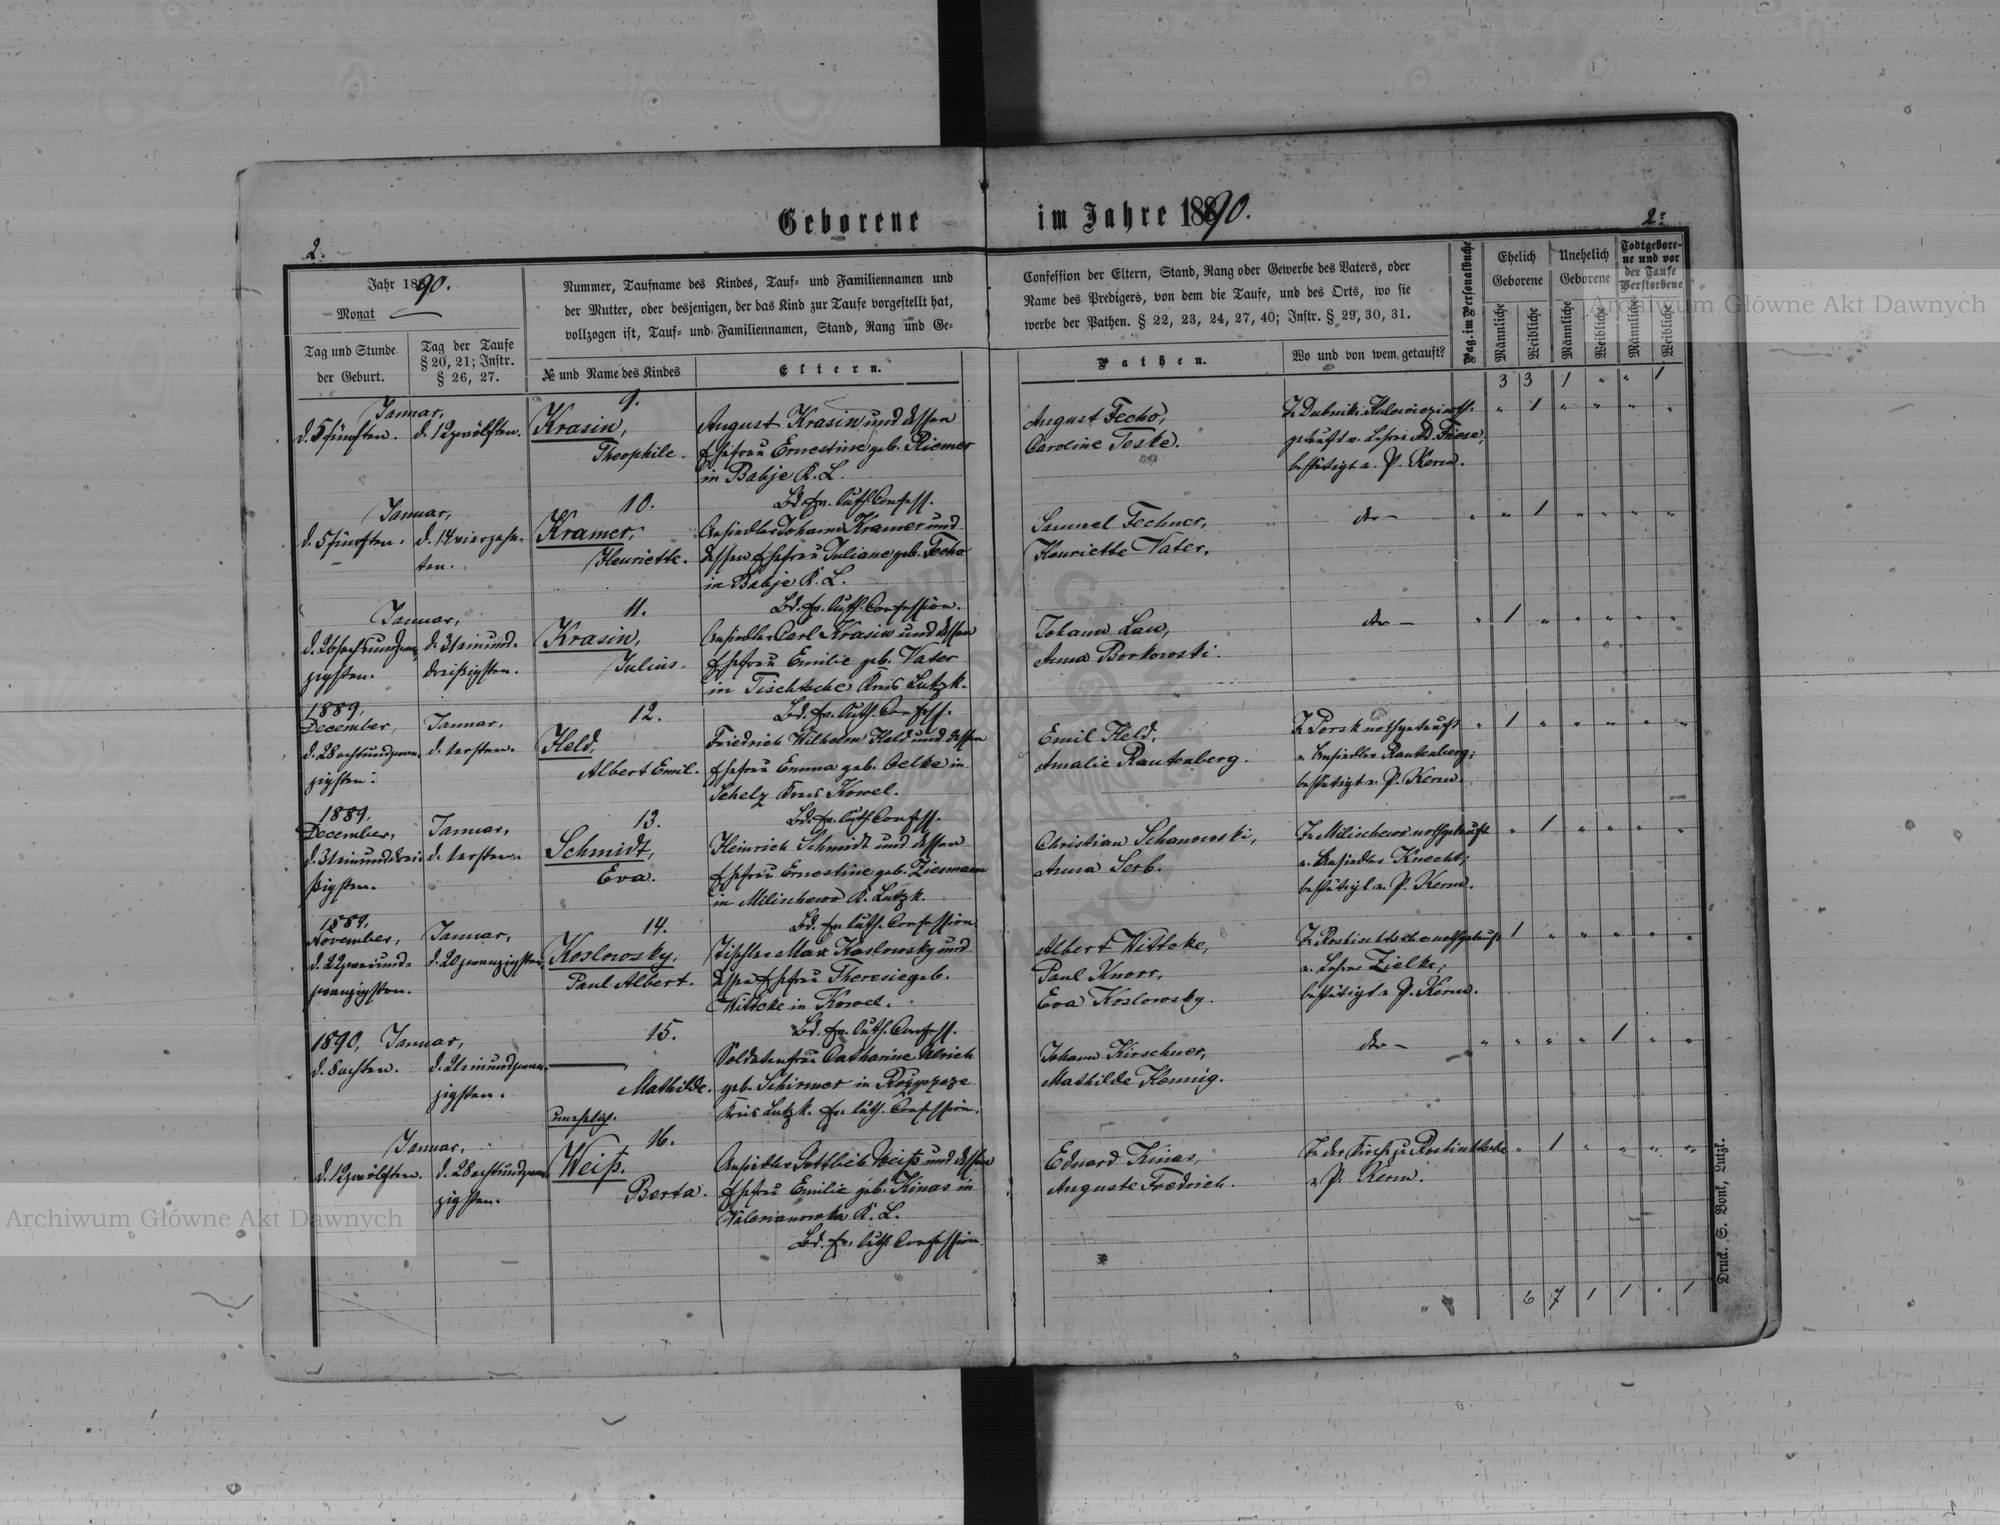 Geborene im Jahre 1890.
2.
2.
Jahr 1890.
Monat
Tag und Stunde der Geburt.
Tag der Taufe § 20, 21; Instr. § 26, 27.
Nummer, Taufname des Kindes, Tauf- und Familiennamen und
der Mutter, oder desjenigen, der das Kind zur Taufe vorgestellt hat,
vollzogen ist, Tauf- und Familiennamen, Stand, Rang und Ge-
№ und Name des Kindes
Eltern.
Confession der Eltern, Stand, Rang oder Gewerbe des Vaters, oder
Name des Predigers, von dem die Taufe, und des Orts, wo sie
werbe der Pathen. § 22, 23, 24, 27, 40; Instr. § 29, 30, 31.
Pathen.
Wo und von wem getauft?
Pag. im Personalbuche
Ehelich Geborene
Unehelich Geborene
Todtgeborene und vor der Taufe Verstorbene
Männliche
Weibliche
Männliche
Weibliche
Männliche
Weibliche
3 3 1 " " 1
Januar,
d. 5 fünften. d. 12 zwölften.
9.
Krasin,
Theophile.
August Krasin und dessen
Ehefrau Ernestine geb. Riemer
in Babje K. L.
Bd. ev. luth. Confess.
August Fecho,
Caroline Teske.
getauft v. Lehrer Ad. Friese,
bestätigt v. P. Kerm.
Januar,
d. 5 fünften. d. 14 vierzehn-
ten.
10.
Kramer,
Henriette.
Ansiedler Johann Kramer und
dessen Ehefrau Juliane geb. Fecho
in Babje K. L.
Bd. ev. luth. Confession.
Samuel Fechner,
Henriette Vater.
dto —
Januar,
d. 26 sechsundzwan-
zigsten.
d. 31 einund-
dreißigsten.
11.
Krasin,
Julius.
Ansiedler Carl Krasin und dessen
Ehefrau Emilie geb. Vater
in Tischtsche Kreis Lutzk.
Bd. ev. luth. Confess.
Johann Lau,
Anna Borkowski.
dto —
1889,
December,
d. 28 achtundzwan-
zigsten.
Januar,
d. 1 ersten.
12.
Held,
Albert Emil.
Friedrich Wilhelm Held und dessen
Ehefrau Emma geb. Oelke in
Schelz Kreis Kowel.
Bd. ev. luth. Confess.
Emil Held,
Amalie Rautenberg.
In Torsk nothgetauft
v. Ansiedler Rautenberg;
bestätigt v. P. Kerm.
1889,
December,
d. 31 einunddrei-
ßigsten.
Januar,
d. 1 ersten.
13.
Schmidt,
Eva.
Heinrich Schmidt und dessen
Ehefrau Ernestine geb. Ziesmann
in Milischewo K. Lutzk.
Bd. ev. luth. Confession
Christian Schanowski,
Anna Serb.
In Milischewo nothgetauft
v. Ansiedler Knecht;
bestätigt v. P. Kerm.
1889,
November,
d. 22 zweiund-
zwanzigsten.
Januar,
d. 20 zwanzigsten.
14.
Koslowsky,
Paul Albert.
Tischler Max Koslowsky und
dessen Ehefrau Therese geb.
Wittcke in Kowel.
Bd. ev. luth. Confess.
Albert Wittcke,
Paul Knorr,
Eva Koslowsky.
In Roschischtsche nothgetauft
v. Lehrer Zielke;
bestätigt v. P. Kerm.
1890, Januar,
d. 8 achten.
d. 21 einundzwan-
zigsten.
15.
Mathilde.
unehelich.
Soldatenfrau Catharine Ulrich
geb. Schirmer in
Kreis Lutzk. ev. luth. Confession.
Johann Kirschner,
Mathilde Hennig.
dto —
Januar,
d. 12 zwölften.
d. 28 achtundzwan-
zigsten.
16.
Weiß,
Berta.
Ansiedler Gottlieb Weiß und dessen
Ehefrau Emilie geb. Kinas in
Valerianowka K. L.
Bd. ev. luth. Confession.
Eduard Kinas,
Auguste Fredrich.
In der Kirche zu Roschischtsche
v. P. Kerm.
6 7 1 1 " 1
Druck. S. Bonk, Lutzk.
Archiwum Główne Akt Dawnych
Archiwum Główne Akt Dawnych